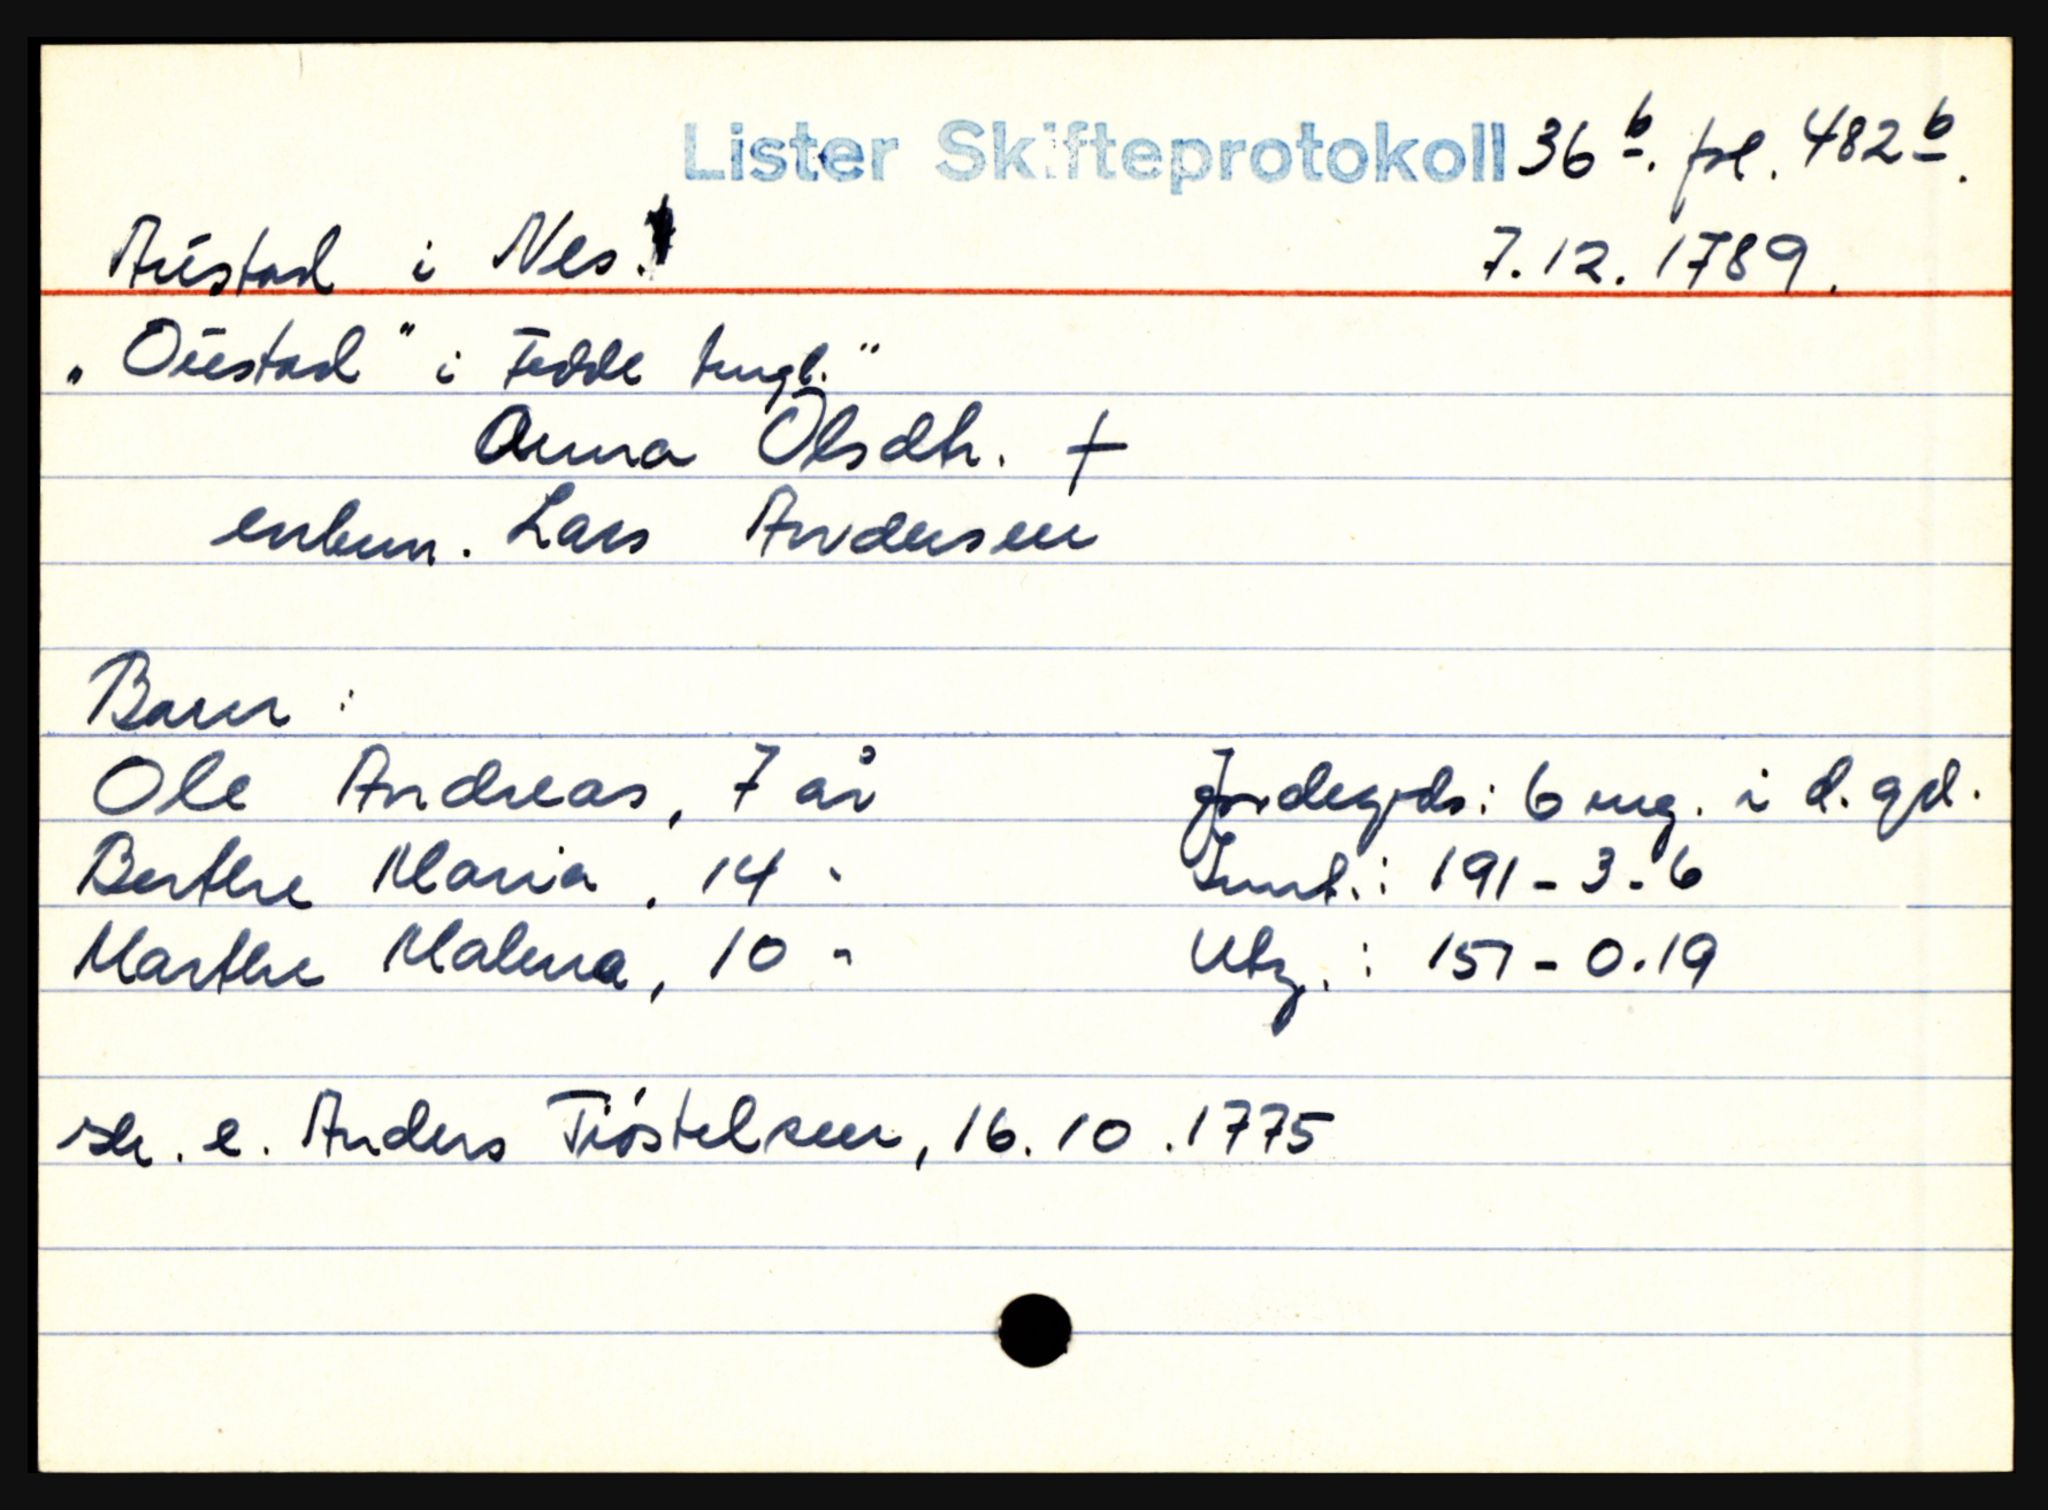 Lister Skifteprotokoll 36 b. fol. 482 b.
Austad i Nes. 7.12.1789.
"Oustad" i Fedde tingl."
Anna Olsdtr. †
enkem. Lars Andersen
Barn:
Ole Andreas, 7 år Jordegods: 6 mg. i d. gd.
Berthe Maria, 14 " Innt.: 191-3-6
Marthe Malena, 10 " Utg.: 157-0-19
sk. e. Anders Tiöstelsen, 16.10.1775